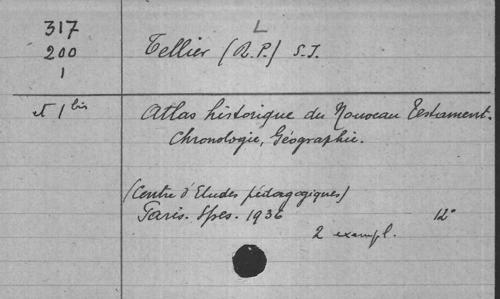 317
L
200
Tellier (R.P.) S.J.
1
et 1 bis
Atlas historique du Nouveau Testament.
Chronologie, Géographie.
(Centre d'Etudes pédagogiques)
Paris. Spes. 1936
12°
2 exempl.